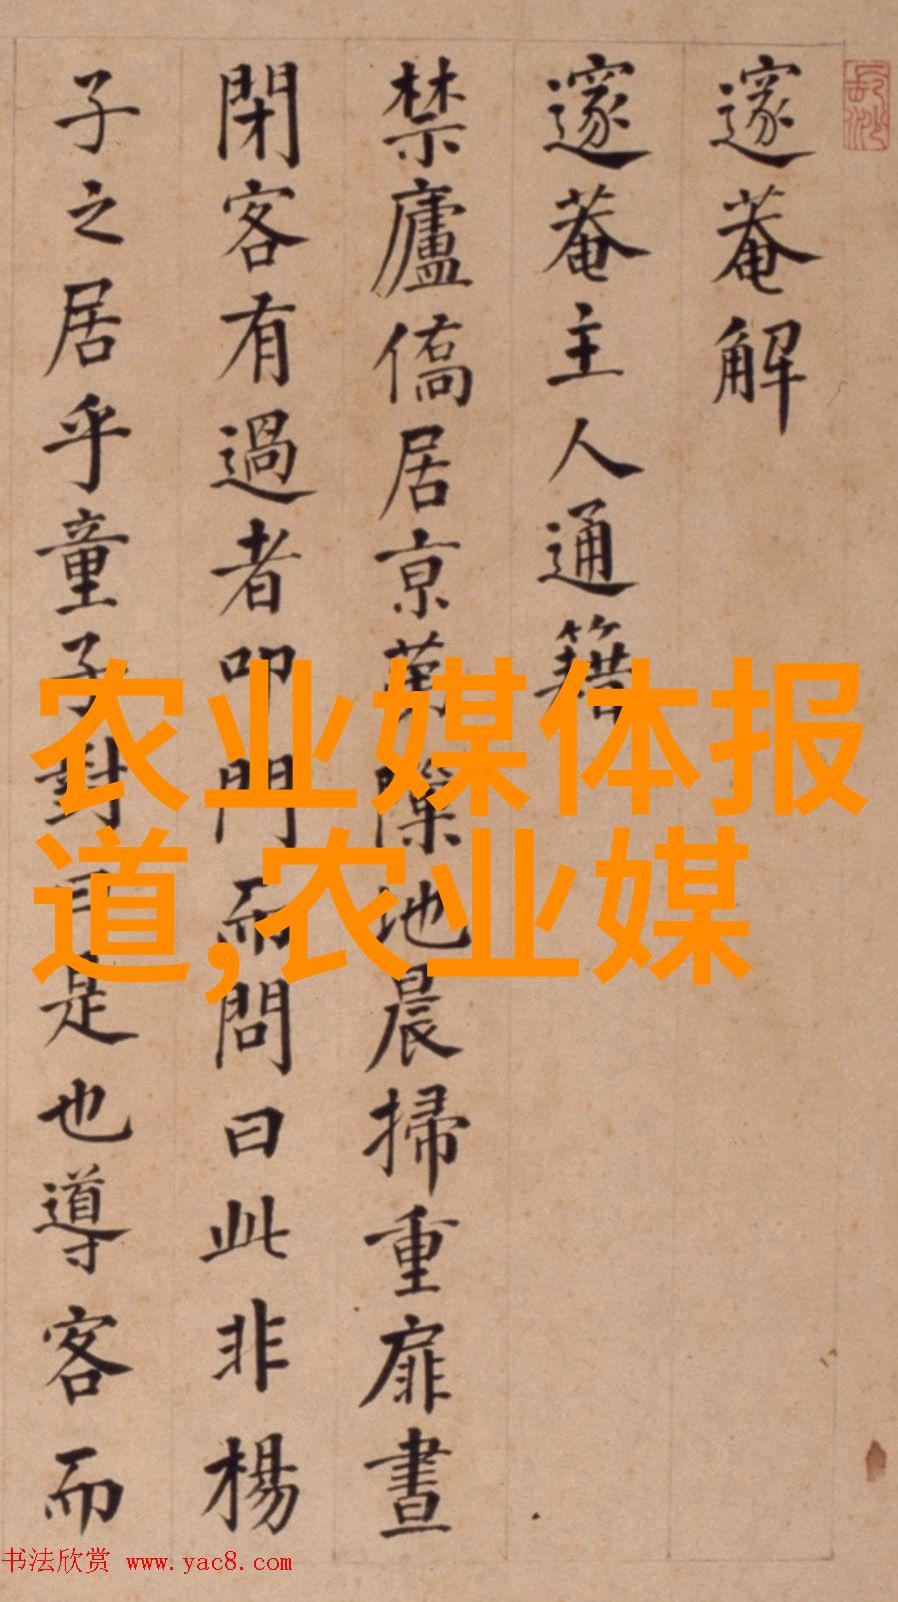 邃菴解
邃菴主人通籍
禁廬僑居亰隙地晨掃重扉晝
閉客有過者叩門而問曰此非楊
子之居乎童子對曰是也導客而
农业媒体报
道,农业媒
书法欣赏 www.yac8.com